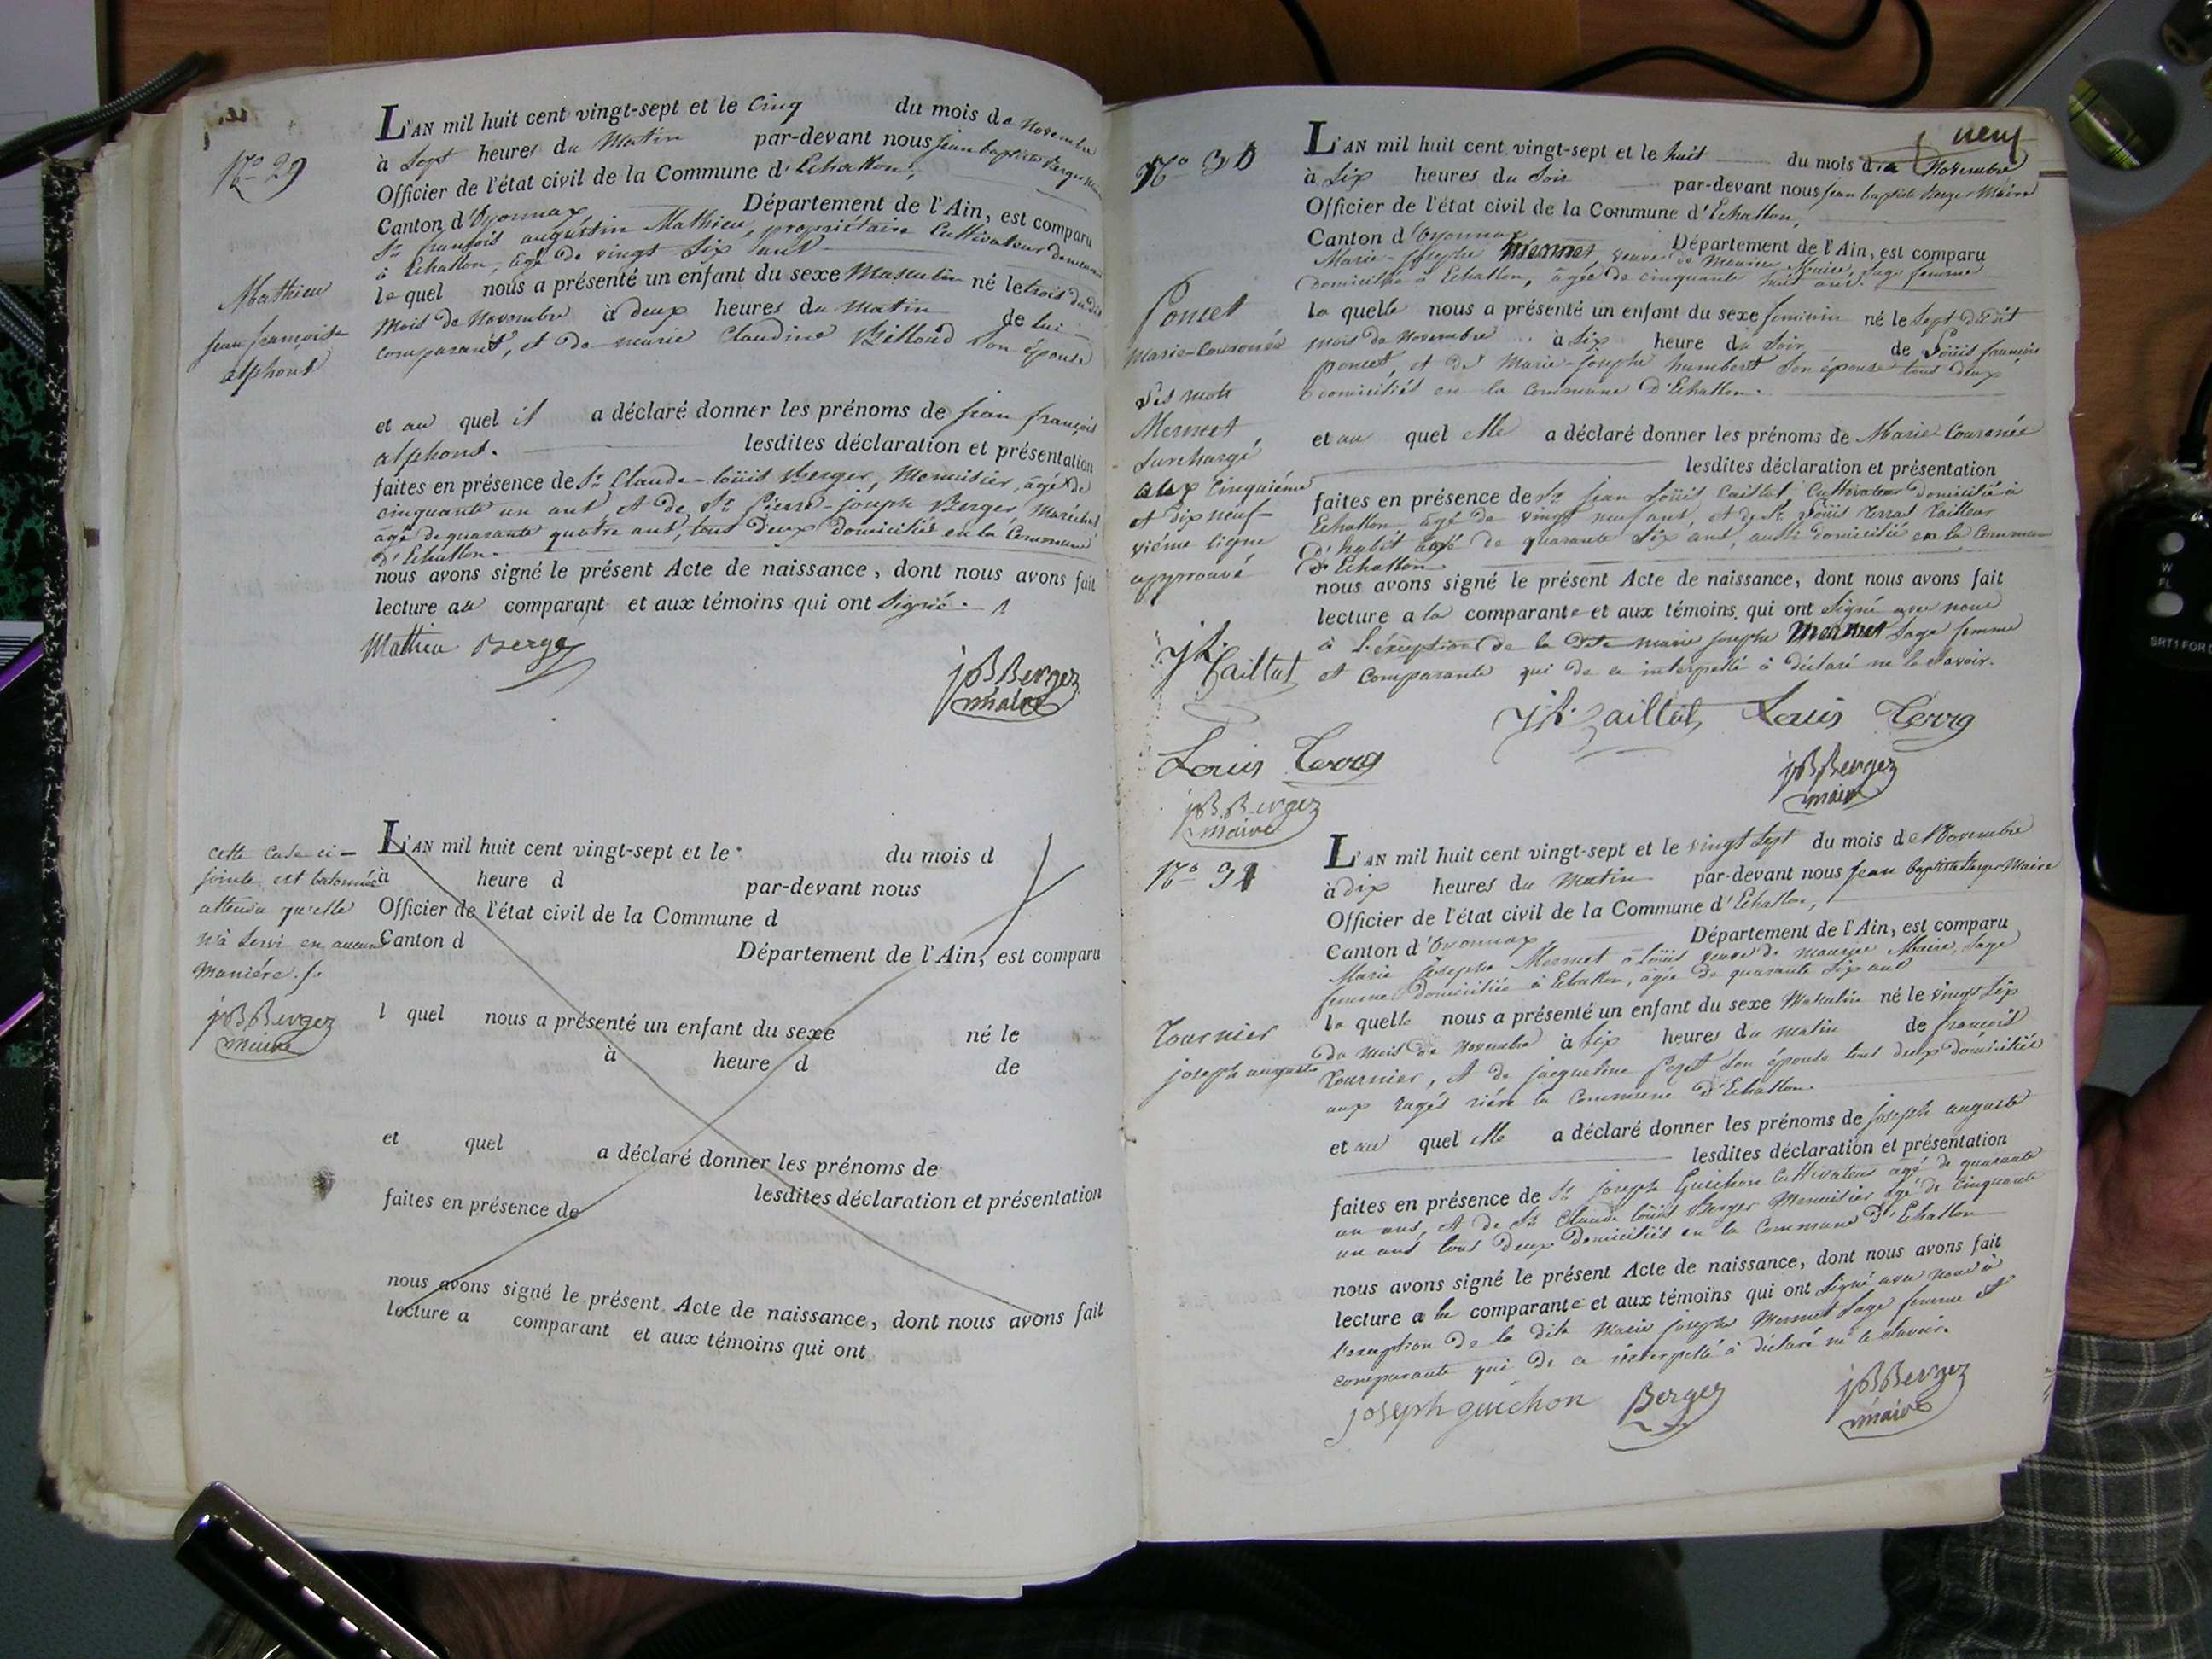 N° 29
L'AN mil huit cent vingt-sept et le Cinq du mois de Novembre
à Sept heures du Matin par-devant nous jean baptiste Berger
Officier de l'état civil de la Commune d'Echallon,
Canton d'Oyonnax Département de l'Ain, est comparu
Sr. françois augustin Mathieu, propriétaire Cultivateur
à Echallon, âgé de vingt Six ans
lequel nous a présenté un enfant du sexe Masculin né le trois dudit
Mois de Novembre à deux heures du Matin de lui
comparant, et de marie Claudine Billoud Son épouse
et au quel il a déclaré donner les prénoms de jean françois
alphons. lesdites déclaration et présentation
faites en présence de Sr. Claude-loüis Berger, Menuisier, âgé de
cinquante un ans, et de Sr. Pierre-joseph Berger Maréchal
âgé de quarante quatre ans, tous deux domiciliés en la Commune
d'Echallon.
nous avons signé le présent Acte de naissance, dont nous avons fait
lecture au comparant et aux témoins qui ont Signé.
Mathieu
jean françois
alphons
Mathieu Berger
jB Berger
maire
cette Case ci-
jointe est batonnée
attendu qu'elle
n'a Servi en aucune
manière.
jB Berger
maire
L'AN mil huit cent vingt-sept et le du mois d
à heure d par-devant nous
Officier de l'état civil de la Commune d
Canton d Département de l'Ain, est comparu
l quel nous a présenté un enfant du sexe né le
à heure d de
et quel a déclaré donner les prénoms de
lesdites déclaration et présentation
faites en présence de
nous avons signé le présent Acte de naissance, dont nous avons fait
lecture a comparant et aux témoins qui ont
neuf
N° 30
L'AN mil huit cent vingt-sept et le huit du mois de Novembre
à Six heures du Soir par-devant nous jean baptiste Berger Maire
Officier de l'état civil de la Commune d'Echallon,
Canton d'Oyonnax Département de l'Ain, est comparu
Marie-josephe Mermet, veuve de Maurice Maire, Sage femme
Domiciliée à Echallon, âgée de cinquante huit ans.
la quelle nous a présenté un enfant du sexe feminin né le Sept dudit
mois de Novembre à Six heure du Soir de Loüis françois
poncet, et de Marie-Josephe humbert Son épouse tous deux
domiciliés en la Commune d'Echallon.
et au quel elle a déclaré donner les prénoms de Marie-Couronée
lesdites déclaration et présentation
faites en présence de Sr. jean Loüis Caillat, Cultivateur domicilié à
Echallon âgé de vingt neuf ans, et de Sr. Loüis Terraz Tailleur
d'habit âgé de quarante Six ans, aussi domicilié en la Commune
d'Echallon.
nous avons signé le présent Acte de naissance, dont nous avons fait
lecture a la comparante et aux témoins qui ont Signé avec nous
à l'éxception de la dite marie josephe Mermet Sage femme
et Comparante qui de ce interpellé à déclaré ne le Savoir.
Poncet
Marie-Couronée
Les mots
Mermet,
Surchargé
aux Cinquième
et dix neuf-
vième ligne
approuvé
Jh. Caillat
Louis Terraz
jB Berger
maire
Jh. Caillat Louis Terraz
jB Berger
maire
N° 31
L'AN mil huit cent vingt-sept et le vingt Sept du mois de Novembre
à dix heures du Matin par-devant nous jean baptiste Berger Maire
Officier de l'état civil de la Commune d'Echallon,
Canton d'Oyonnax Département de l'Ain, est comparu
Marie Josephe Mermet à Loüis veuve de maurice Maire, Sage
femme Domiciliée à Echallon, âgée de quarante Six ans
la quelle nous a présenté un enfant du sexe Masculin né le vingt Six
du mois de Novembre à Six heures du matin de françois
Tournier, et de jacqueline Perret Son épouse tous deux domiciliés
aux rière la Commune d'Echallon.
et au quel elle a déclaré donner les prénoms de joseph auguste
lesdites déclaration et présentation
faites en présence de Sr. joseph Guichon Cultivateur âgé de quarante
un ans, et de Sr. Claude loüis Berger Menuisier âgé de Cinquante
un ans tous deux Domiciliés en la Commune d'Echallon
nous avons signé le présent Acte de naissance, dont nous avons fait
lecture a la comparante et aux témoins qui ont Signé avec nous à
l'exception de la dite Marie josephe Mermet Sage femme et
comparante qui de ce interpellé à déclaré ne le Savoir.
Tournier
joseph auguste
joseph guichon Berger
jB Berger
maire